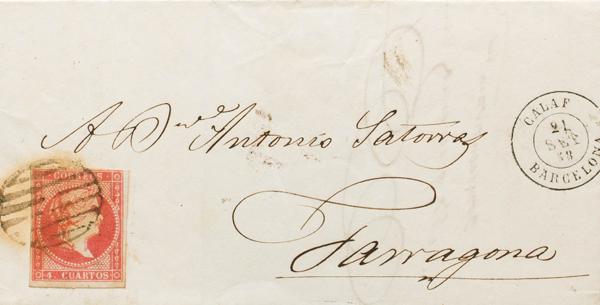 CALAF
21
SET
58
BARCELONA
A Dn. Antonio Satorras
Tarragona
CORREOS
4 CUARTOS